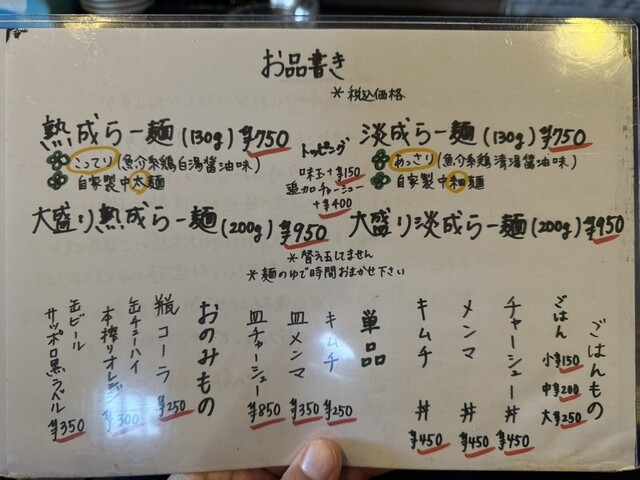 お品書き
*税込価格
熟成らー麺(130g) ¥750
こってり(魚介系鶏白湯醤油味)
自家製中太麺
大盛り熟成らー麺(200g) ¥950
トッピング
味玉+¥150
追加チャーシュー
+¥400
淡成らー麺(130g) ¥750
あっさり(魚介系鶏清湯醤油味)
自家製中細麺
大盛り淡成らー麺(200g) ¥950
*替え玉してません
*麺のゆで時間おまかせ下さい
ごはんもの
ごはん 小¥150
中¥200
大¥250
チャーシュー丼 ¥450
メンマ丼 ¥450
キムチ丼 ¥450
単品
キムチ ¥250
皿メンマ ¥350
皿チャーシュー ¥850
おのみもの
瓶コーラ ¥250
缶チューハイ
本搾りオレンジ ¥300
缶ビール
サッポロ黒ラベル ¥350